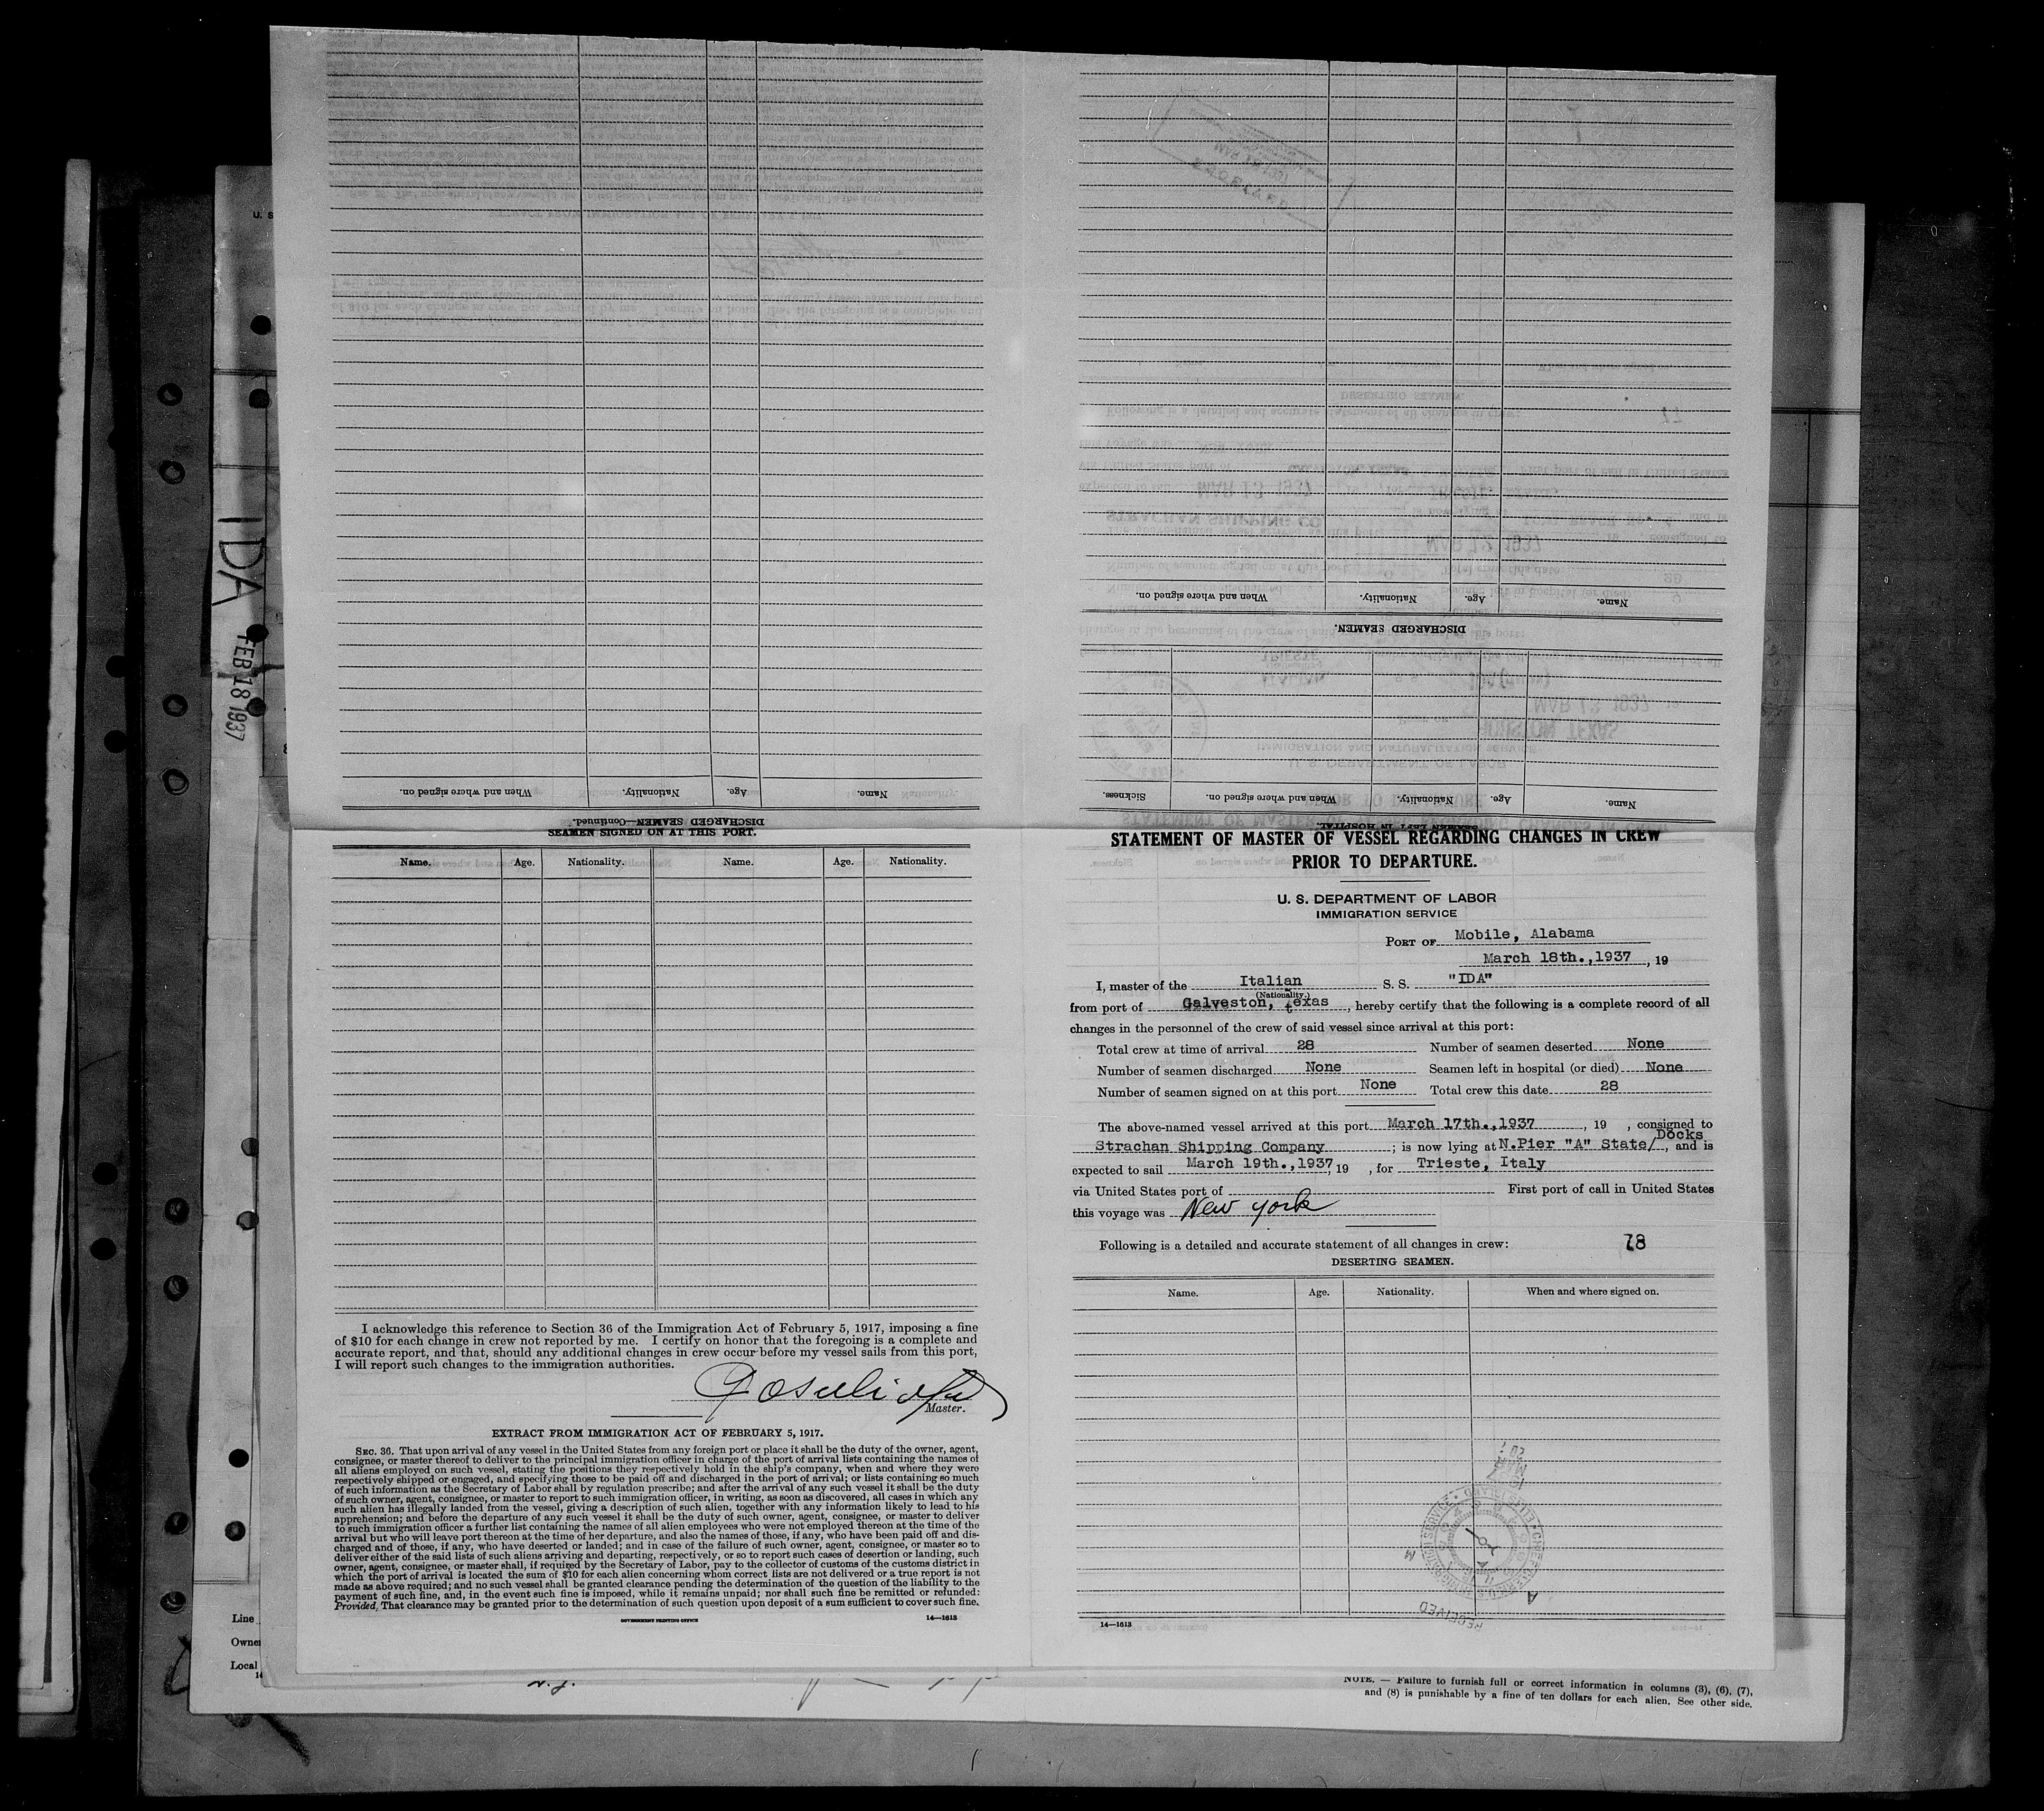 U. S
IDA
FEB 18 1937
When and where signed on.
Nationality.
Age.
Name.
DISCHARGED SEAMEN—Continued.
When and where signed on.
Nationality.
Age.
Name.
DISCHARGED SEAMEN.
Sickness.
When and where signed on.
Nationality.
Age.
Name.
SEAMEN LEFT IN HOSPITAL.
SEAMEN SIGNED ON AT THIS PORT.
Name. Age. Nationality. Name. Age. Nationality.
I acknowledge this reference to Section 36 of the Immigration Act of February 5, 1917, imposing a fine
of $10 for each change in crew not reported by me. I certify on honor that the foregoing is a complete and
accurate report, and that, should any additional changes in crew occur before my vessel sails from this port,
I will report such changes to the immigration authorities.
Master.
EXTRACT FROM IMMIGRATION ACT OF FEBRUARY 5, 1917.
SEC. 36. That upon arrival of any vessel in the United States from any foreign port or place it shall be the duty of the owner, agent,
consignee, or master thereof to deliver to the principal immigration officer in charge of the port of arrival lists containing the names of
all aliens employed on such vessel, stating the positions they respectively hold in the ship's company, when and where they were
respectively shipped or engaged, and specifying those to be paid off and discharged in the port of arrival; or lists containing so much
of such information as the Secretary of Labor shall by regulation prescribe; and after the arrival of any such vessel it shall be the duty
of such owner, agent, consignee, or master to report to such immigration officer, in writing, as soon as discovered, all cases in which any
such alien has illegally landed from the vessel, giving a description of such alien, together with any information likely to lead to his
apprehension; and before the departure of any such vessel it shall be the duty of such owner, agent, consignee, or master to deliver
to such immigration officer a further list containing the names of all alien employees who were not employed thereon at the time of the
arrival but who will leave port thereon at the time of her departure, and also the names of those, if any, who have been paid off and dis-
charged and of those, if any, who have deserted or landed; and in case of the failure of such owner, agent, consignee, or master so to
deliver either of the said lists of such aliens arriving and departing, respectively, or so to report such cases of desertion or landing, such
owner, agent, consignee, or master shall, if required by the Secretary of Labor, pay to the collector of customs of the customs district in
which the port of arrival is located the sum of $10 for each alien concerning whom correct lists are not delivered or a true report is not
made as above required; and no such vessel shall be granted clearance pending the determination of the question of the liability to the
payment of such fine, and, in the event such fine is imposed, while it remains unpaid; nor shall such fine be remitted or refunded:
Provided, That clearance may be granted prior to the determination of such question upon deposit of a sum sufficient to cover such fine.
GOVERNMENT PRINTING OFFICE 14—1613
STATEMENT OF MASTER OF VESSEL REGARDING CHANGES IN CREW
PRIOR TO DEPARTURE.
U. S. DEPARTMENT OF LABOR
IMMIGRATION SERVICE
PORT OF Mobile, Alabama
March 18th.,1937, 19
I, master of the Italian S. S. "IDA"
(Nationality.)
from port of Galveston, texas, hereby certify that the following is a complete record of all
changes in the personnel of the crew of said vessel since arrival at this port:
Total crew at time of arrival 28 Number of seamen deserted None
Number of seamen discharged None Seamen left in hospital (or died) None
Number of seamen signed on at this port None Total crew this date 28
The above-named vessel arrived at this port March 17th.,1937, 19 , consigned to
Strachan Shipping Company; is now lying at N.Pier "A" State/Docks, and is
expected to sail March 19th.,1937, 19 , for Trieste, Italy
via United States port of First port of call in United States
this voyage was New York
Following is a detailed and accurate statement of all changes in crew: 78
DESERTING SEAMEN.
Name. Age. Nationality. When and where signed on.
RECEIVED
14—1613
Line
Owne
Local
14
NOTE. — Failure to furnish full or correct information in columns (3), (6), (7),
and (8) is punishable by a fine of ten dollars for each alien. See other side.